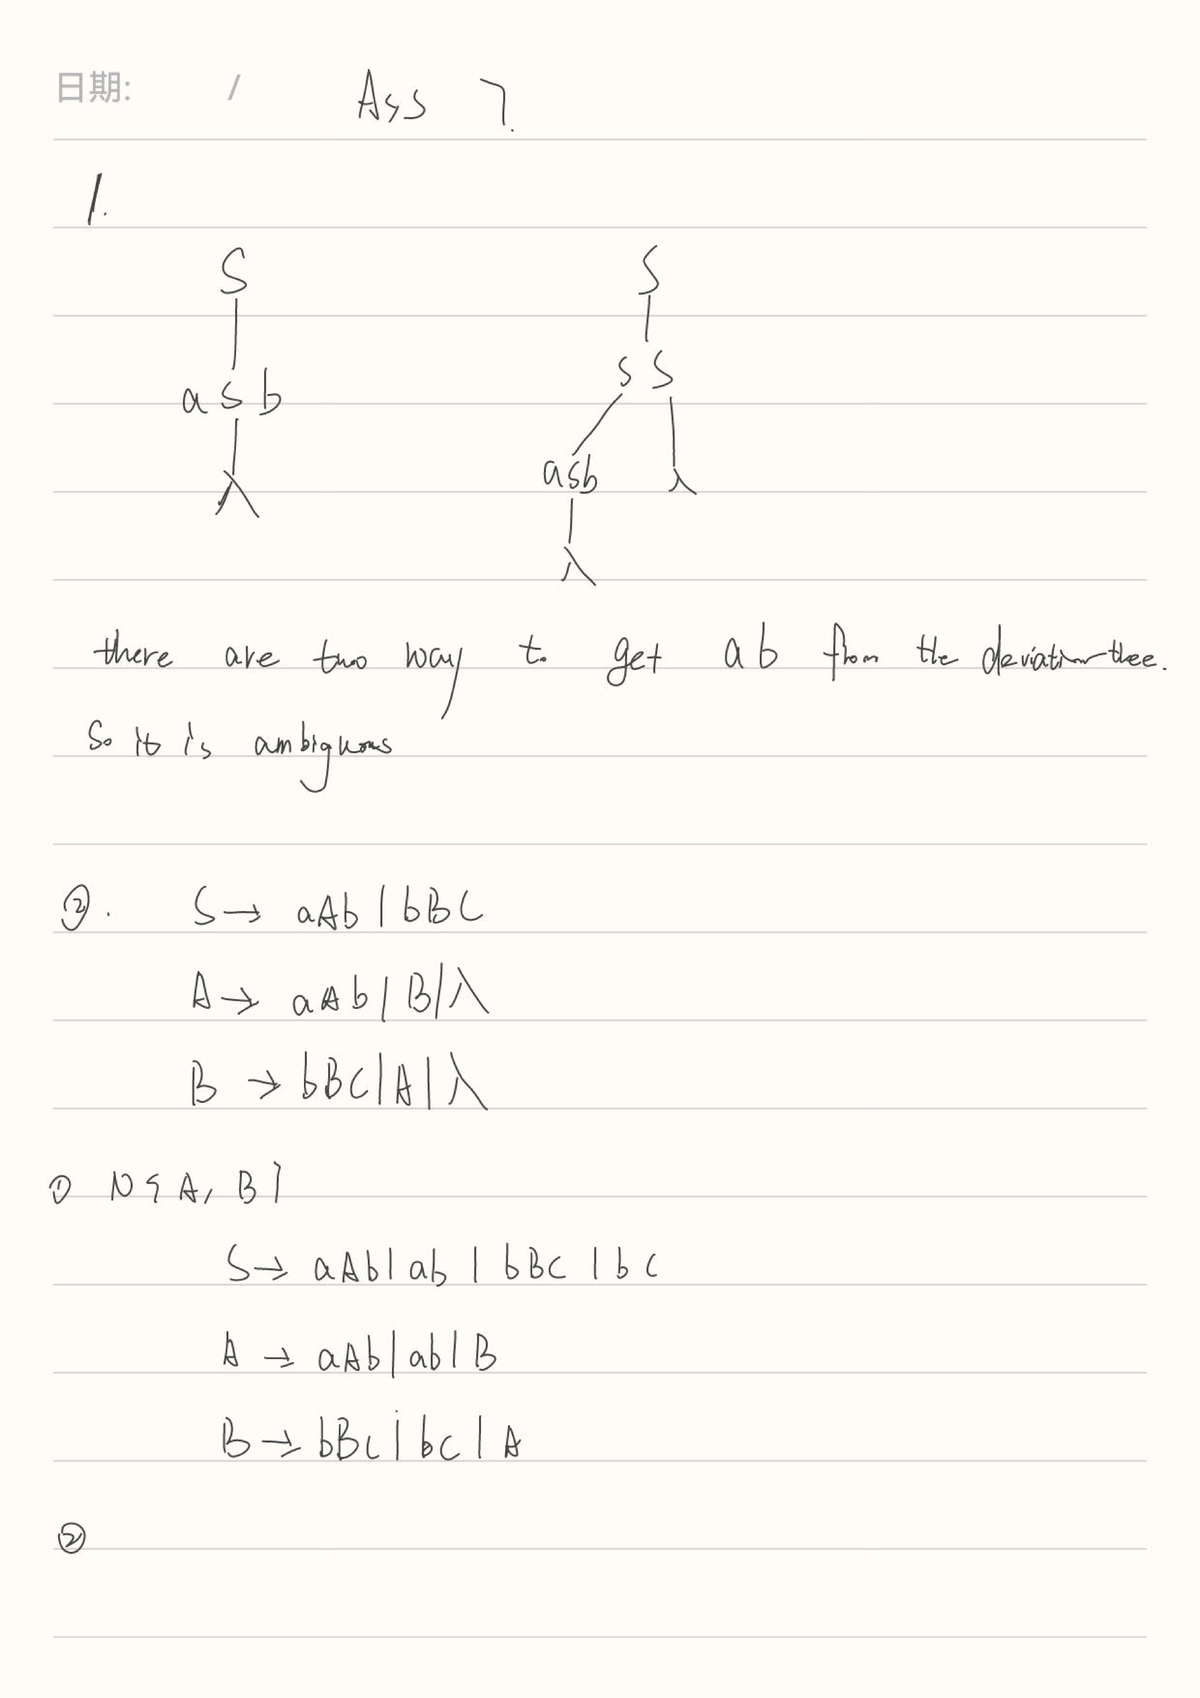 日期: /
Ass 7.
1.
S S
s S
a s b
asb λ
λ
λ
there are two way to get ab from the deviation thee.
So it is ambiguous
②. S → aAb | bBC
A → aAb | B | λ
B → bBC | A | λ
① N { A, B }
S → aAb | ab | bBC | bC
A → aAb | ab | B
B → bBC | bC | A
②